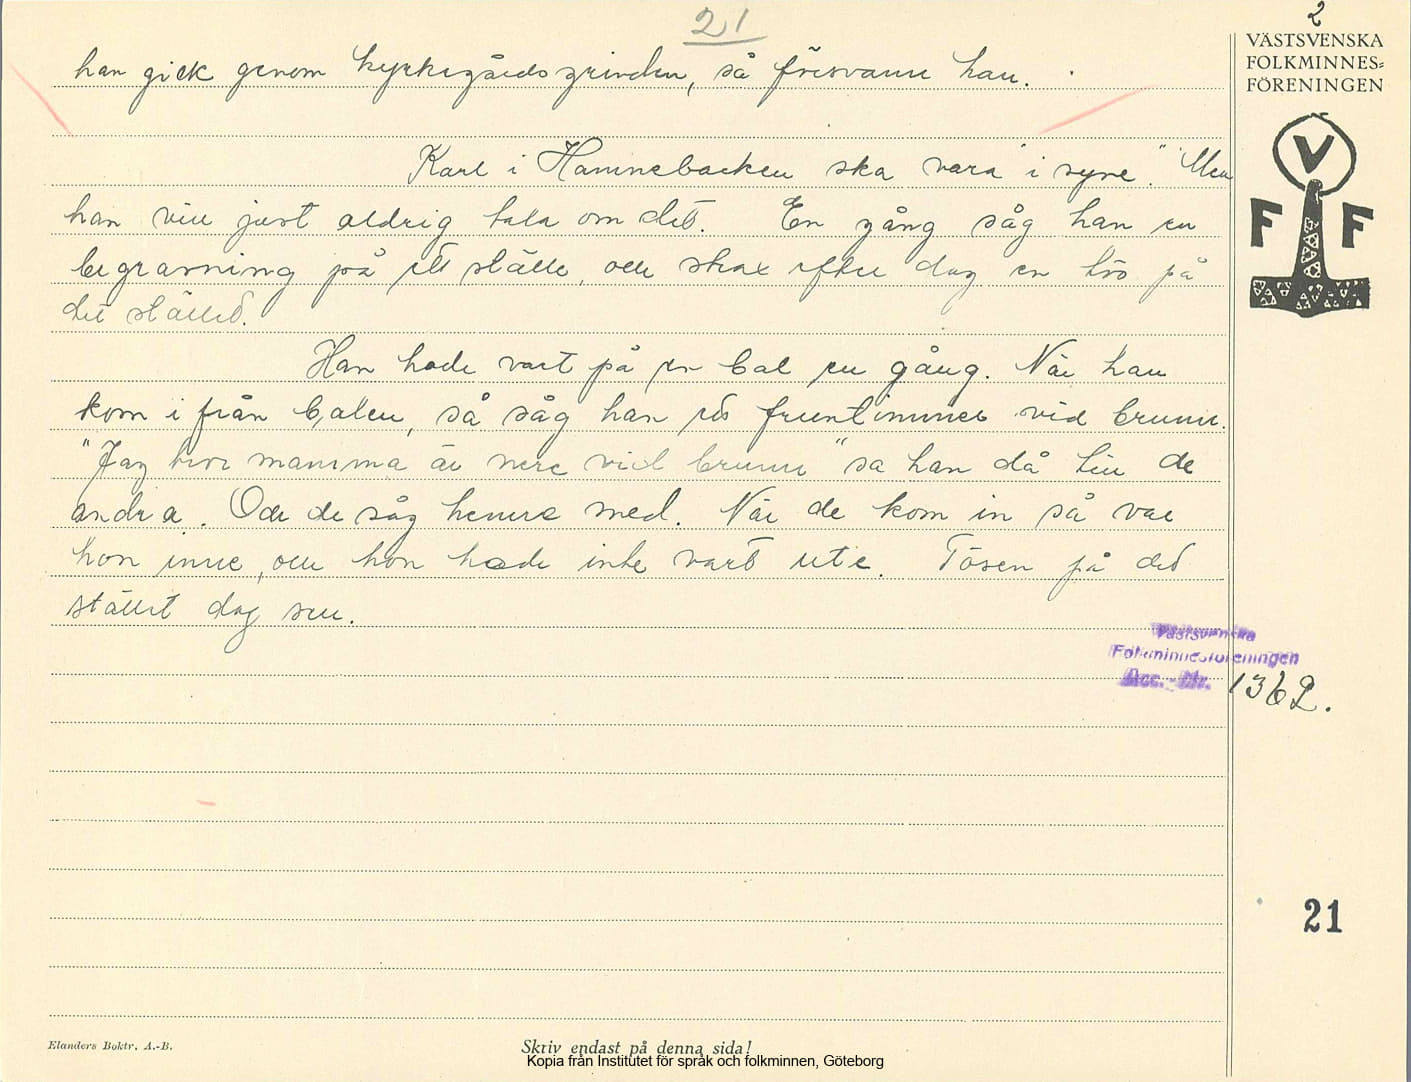 21
2
VÄSTSVENSKA
FOLKMINNES=
FÖRENINGEN
V
F F
han gick genom kyrkegårdsgrinden, så försvann han.
Karl i Hamnebacken ska vara "i syne". Men
han vill just aldrig tala om det. En gång såg han en
begravning på ett ställe, och strax efter dog en tös på
det stället.
Han hade vart på en bal en gång. När han
kom ifrån balen, så såg han ett fruntimmer vid brunn.
"Jag tror mamma är nere vid brunn" sa han då till de
andra. Och de såg henne med. När de kom in så var
hon inne, och hon hade inte vart ute. Tösen på det
stället dog sen.
Västsvenska
Folkminnesföreningen
Acc. - Nr. 1362.
21
Elanders Boktr. A.-B.
Skriv endast på denna sida!
Kopia från Institutet för språk och folkminnen, Göteborg